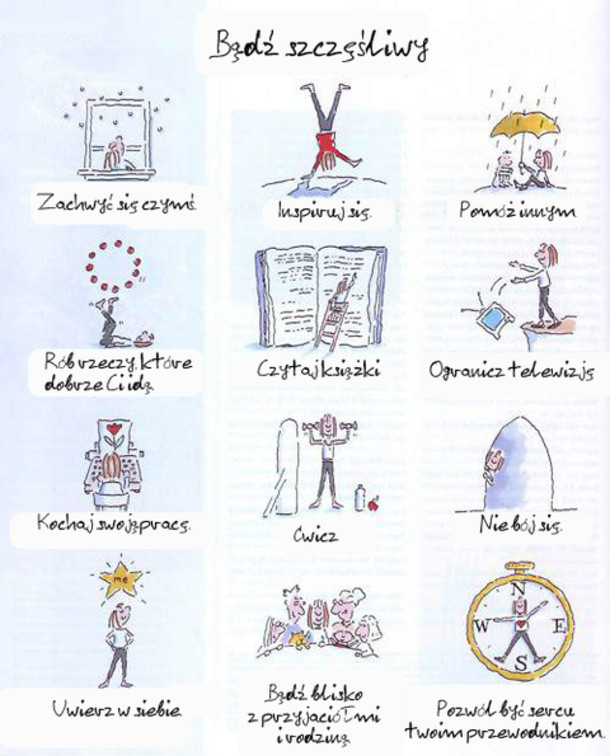 Bądź szczęśliwy
Zachwyć się czymś.
Inspiruj się.
Pomóż innym
Rób rzeczy, które
dobrze Ci idą.
Czytaj książki
Ogranicz telewizję
Kochaj swoją pracę.
Ćwicz
Nie bój się.
me
Uwierz w siebie.
Bądź blisko
z przyjaciółmi
i rodziną.
N
W E
S
Pozwól być sercu
twoim przewodnikiem.